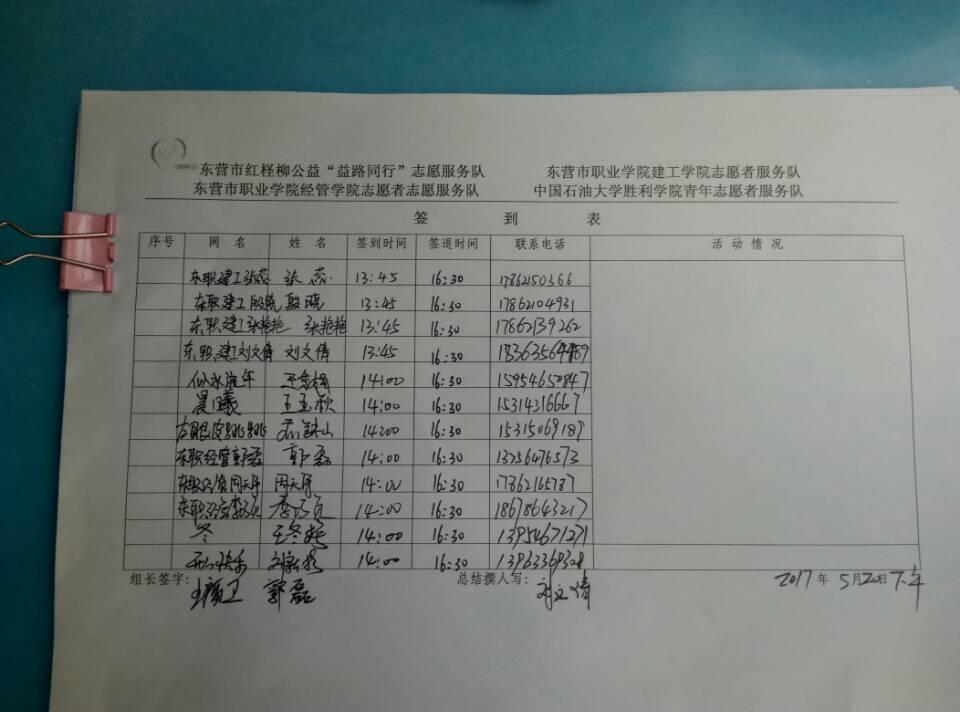 东营市红柽柳公益“益路同行”志愿服务队 东营市职业学院建工学院志愿者服务队
东营市职业学院经管学院志愿者志愿服务队 中国石油大学胜利学院青年志愿者服务队
签到表
序号 网名 姓名 签到时间 签退时间 联系电话 活动情况
东职建工张蕊 张蕊 13:45 16:30 17862150366
东职建工殷晓 殷晓 13:45 16:30 17862104931
东职建工张艳艳 张艳艳 13:45 16:30 17862139262
东职建工刘文倩 刘文倩 13:45 16:30
似水流年 14:00 16:30 15954650847
晨曦 王玉秋 14:00 16:30 15314316667
左眼皮跳跳 14:00 16:30 15315069189
东职经管郭磊 郭磊 14:00 16:30 13756476573
东职经管周天宇 周天宇 14:00 16:30 17862165787
东职经管 14:00 16:30 18678643217
冬 王冬梅 14:00 16:30 13954671271
14:00 16:30
组长签字： 郭磊 总结撰人写： 刘文倩 2017年5月20日下午